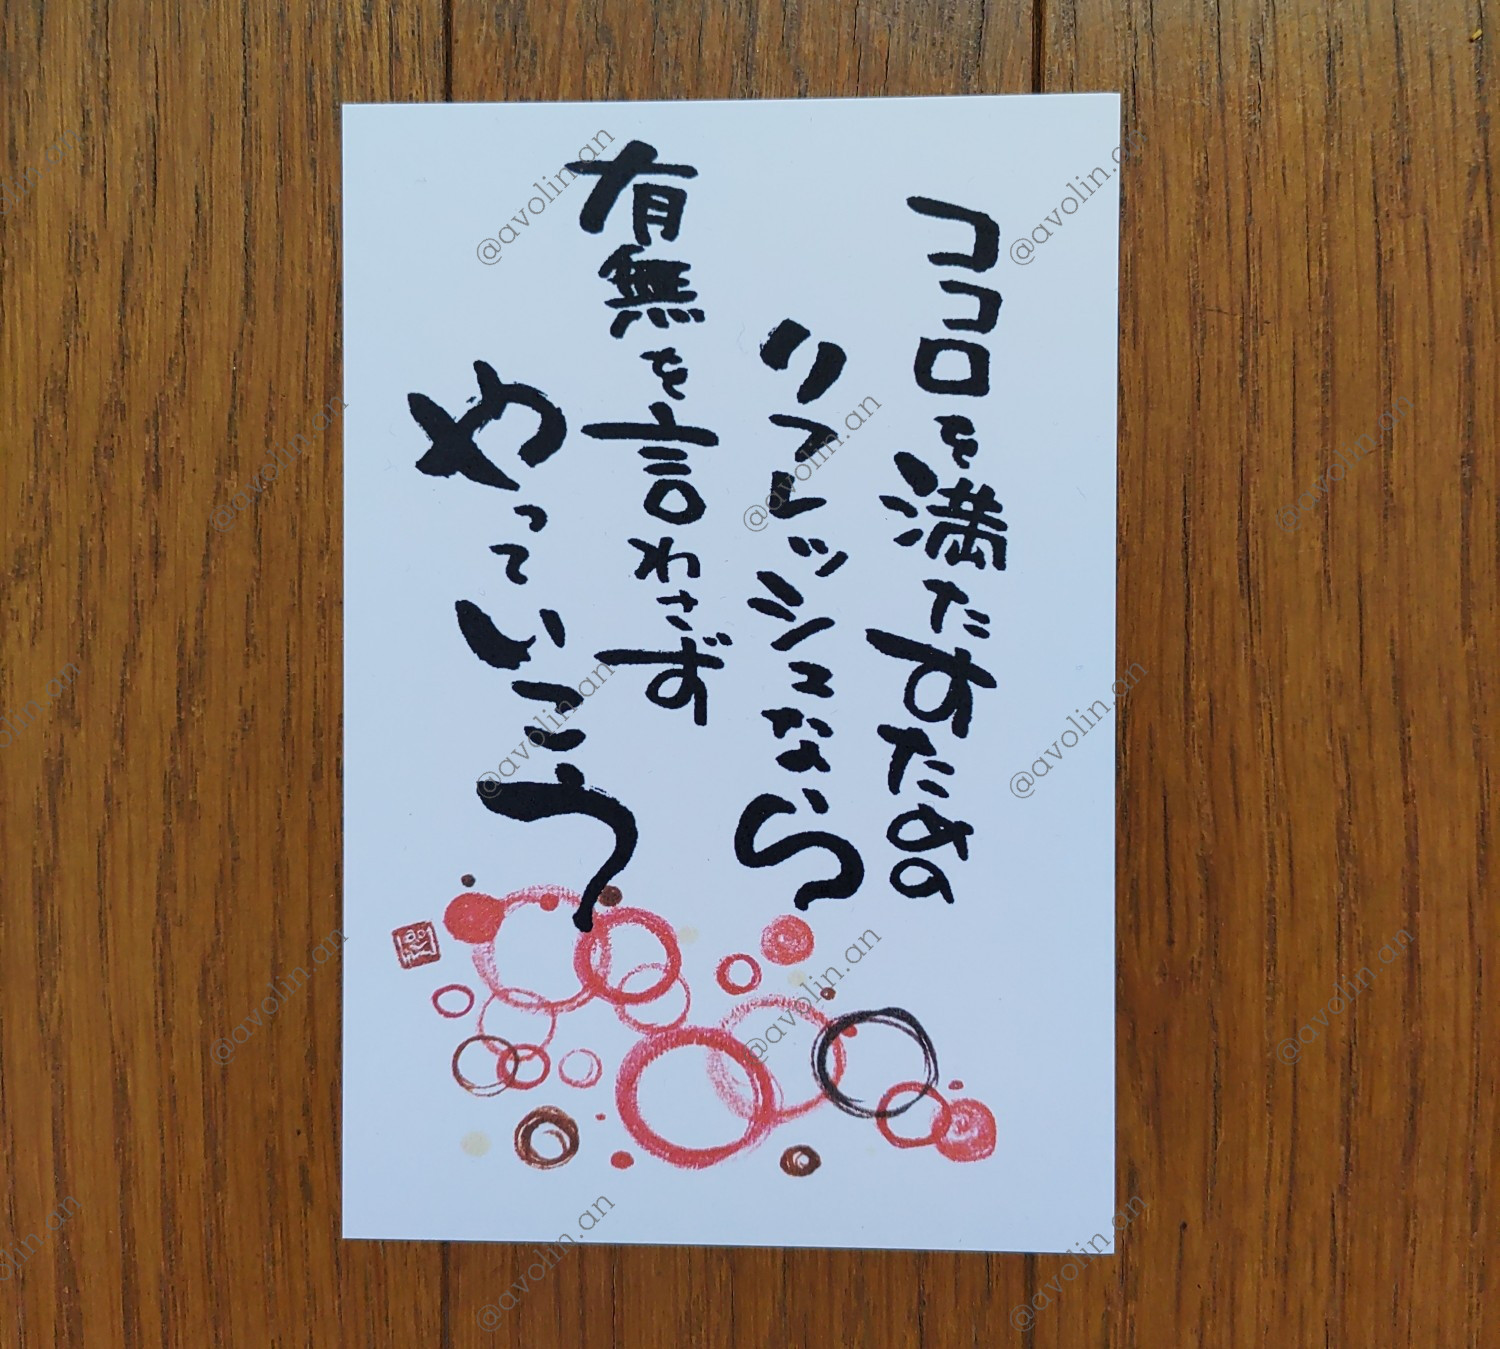 ココロを満たすための
リフレッシュなら
有無を言わさず
やっていこう
@avolin.an